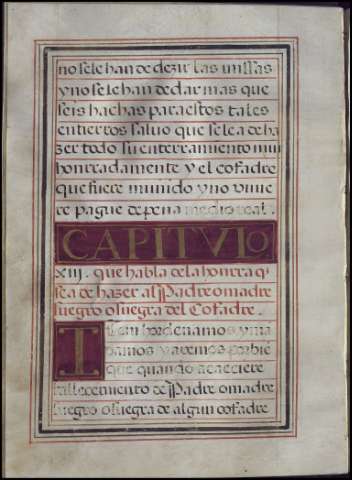 no se le han de dezir las missas
y no se le han de dar mas que
seis hachas para estos tales
entierros saluo que se le a de ha
zer todo su enterramiento mui
honrradamente y el cofadre
que fuere munido y no vinie
re pague de pena medio real.
CAPITVLO
XIII. que habla de la honrra q̃
se a de hazer al Padre o madre
suegro o suegra del Cofadre.
ITem hordenamos y ma
damos y avemos por bie
que quando acaeciere
fallecimiento de Padre o madre
suegro o suegra de algun cofadre